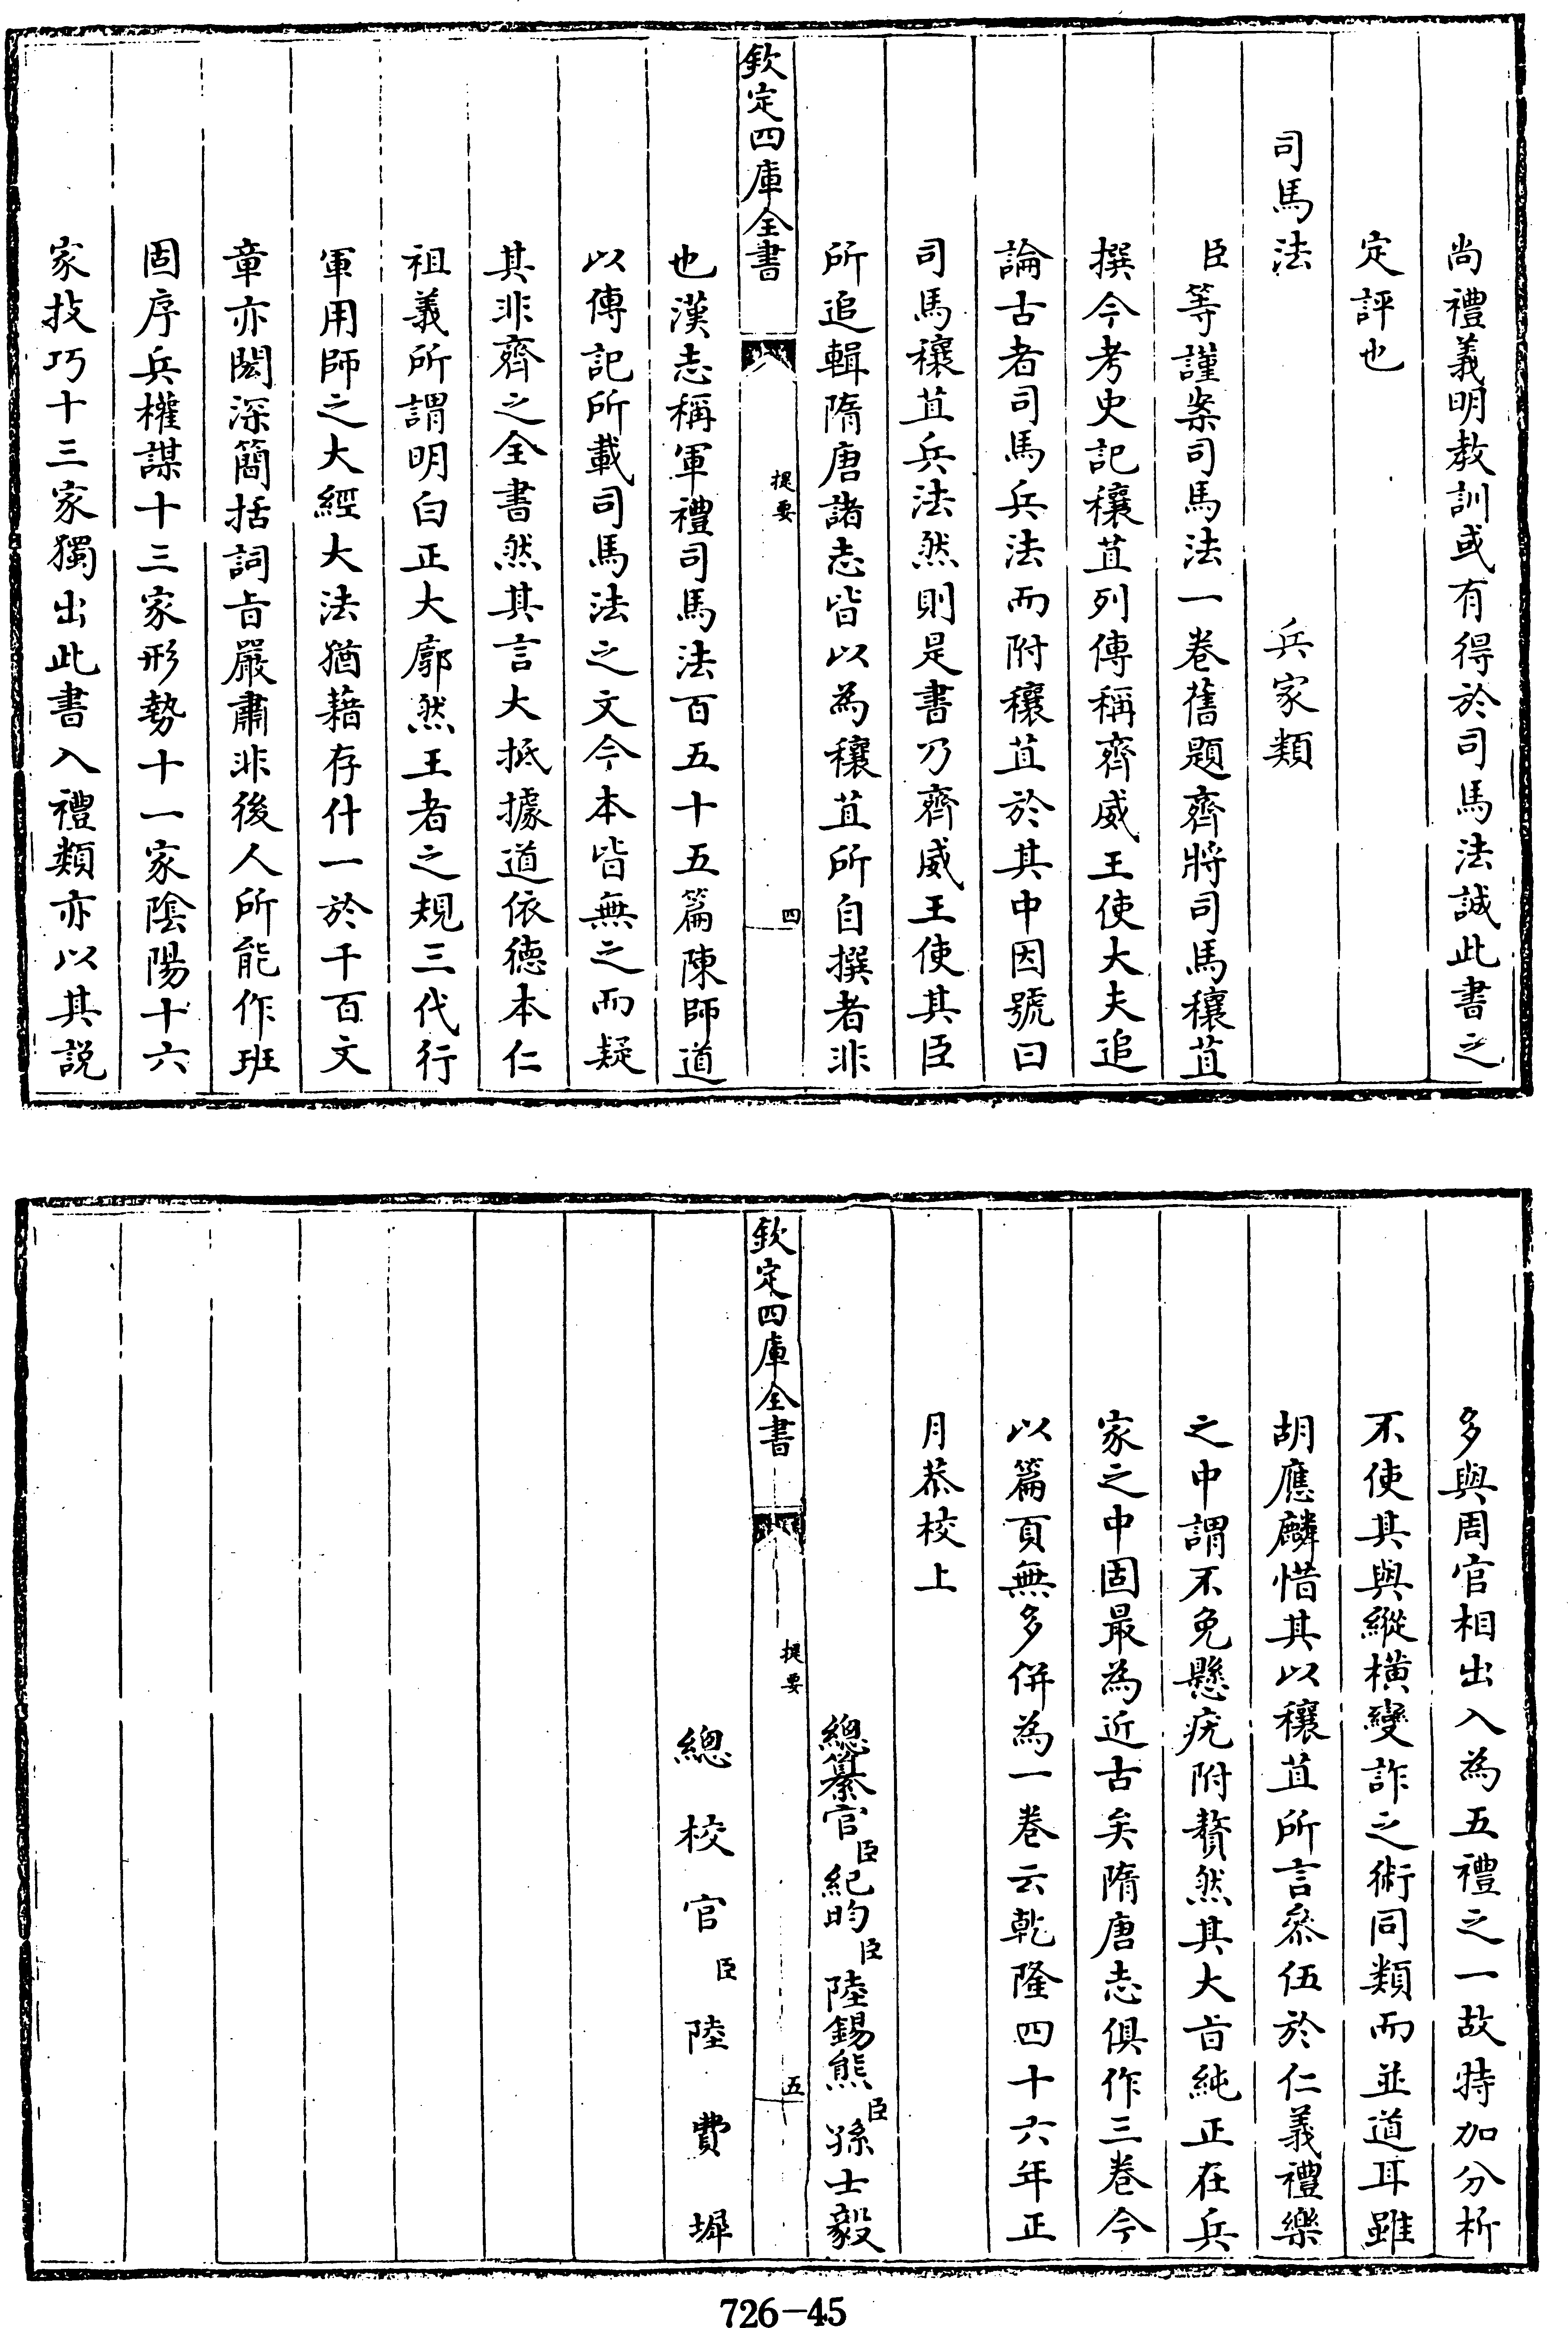 尚禮義明教訓或有得於司馬法誠此書之
定評也
司馬法　兵家類
臣等謹案司馬法一卷舊題齊將司馬穰苴
撰今考史記穰苴列傳稱齊威王使大夫追
論古者司馬兵法而附穰苴於其中因號曰
司馬穰苴兵法然則是書乃齊威王使其臣
所追輯隋唐諸志皆以為穰苴所自撰者非
欽定四庫全書　提要　四
也漢志稱軍禮司馬法百五十五篇陳師道
以傳記所載司馬法之文今本皆無之而疑
其非齊之全書然其言大抵據道依德本仁
祖義所謂明白正大廓然王者之規三代行
軍用師之大經大法猶藉存什一於千百文
章亦閎深簡括詞旨嚴肅非後人所能作班
固序兵權謀十三家形勢十一家陰陽十六
家技巧十三家獨出此書入禮類亦以其説
多與周官相出入為五禮之一故特加分析
不使其與縱橫變詐之術同類而並道耳雖
胡應麟惜其以穰苴所言叅伍於仁義禮樂
之中謂不免懸疣附贅然其大旨純正在兵
家之中固最為近古矣隋唐志俱作三卷今
以篇頁無多併為一卷云乾隆四十六年正
月恭校上
總纂官臣紀昀臣陸錫熊臣孫士毅
欽定四庫全書　提要　五
總校官臣陸費墀
726-45